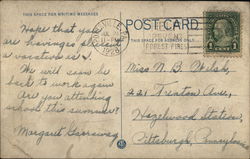 THIS SPACE FOR WRITING MESSAGES
POST CARD
THIS SPACE FOR ADDRESS ONLY
1928
FOREST FIRES
Hope that you
are having a pleasant
a vacation as I.
We will soon be
back to work again
Are you attending
school this summer?
Margaret
Miss N. B. Welsh,
221 Trenton Ave,
Hazelwood Station,
Pittsburgh, Pennsylvan